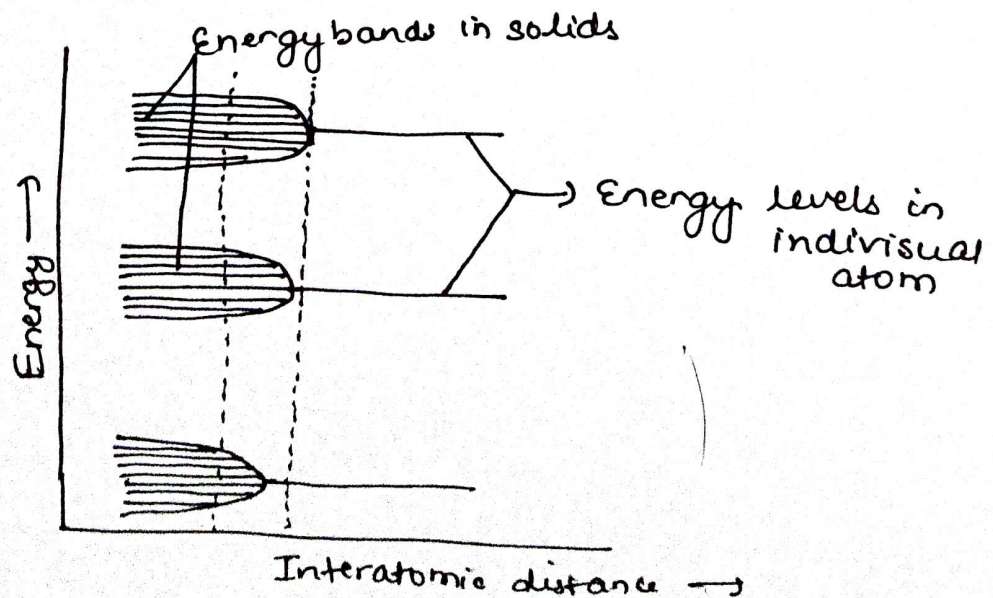 Energy bands in solids
Energy levels in
indivisual
atom
Energy
Interatomic distance